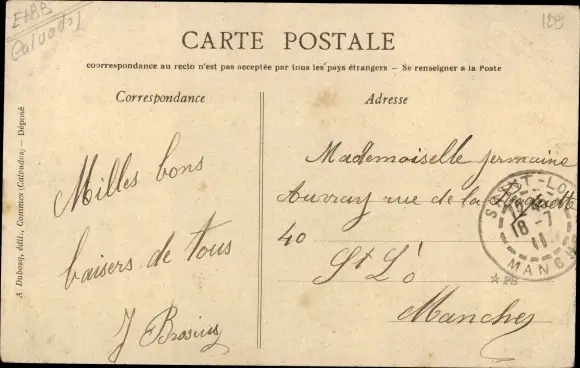 EtBB
Calvados
1219
CARTE POSTALE
coorrespondance au recto n'est pas acceptée par tous les pays étrangers — Se renseigner a la Poste
Correspondance
Adresse
A Dubosq, édit., Commes (Calvados) — Déposé
Milles bons
baisers de tous
J Brosius
Mademoiselle Germaine
Auvray rue de la
40
St Lô
Manches
SAINT-LO
12
18-7
11
MANCHE